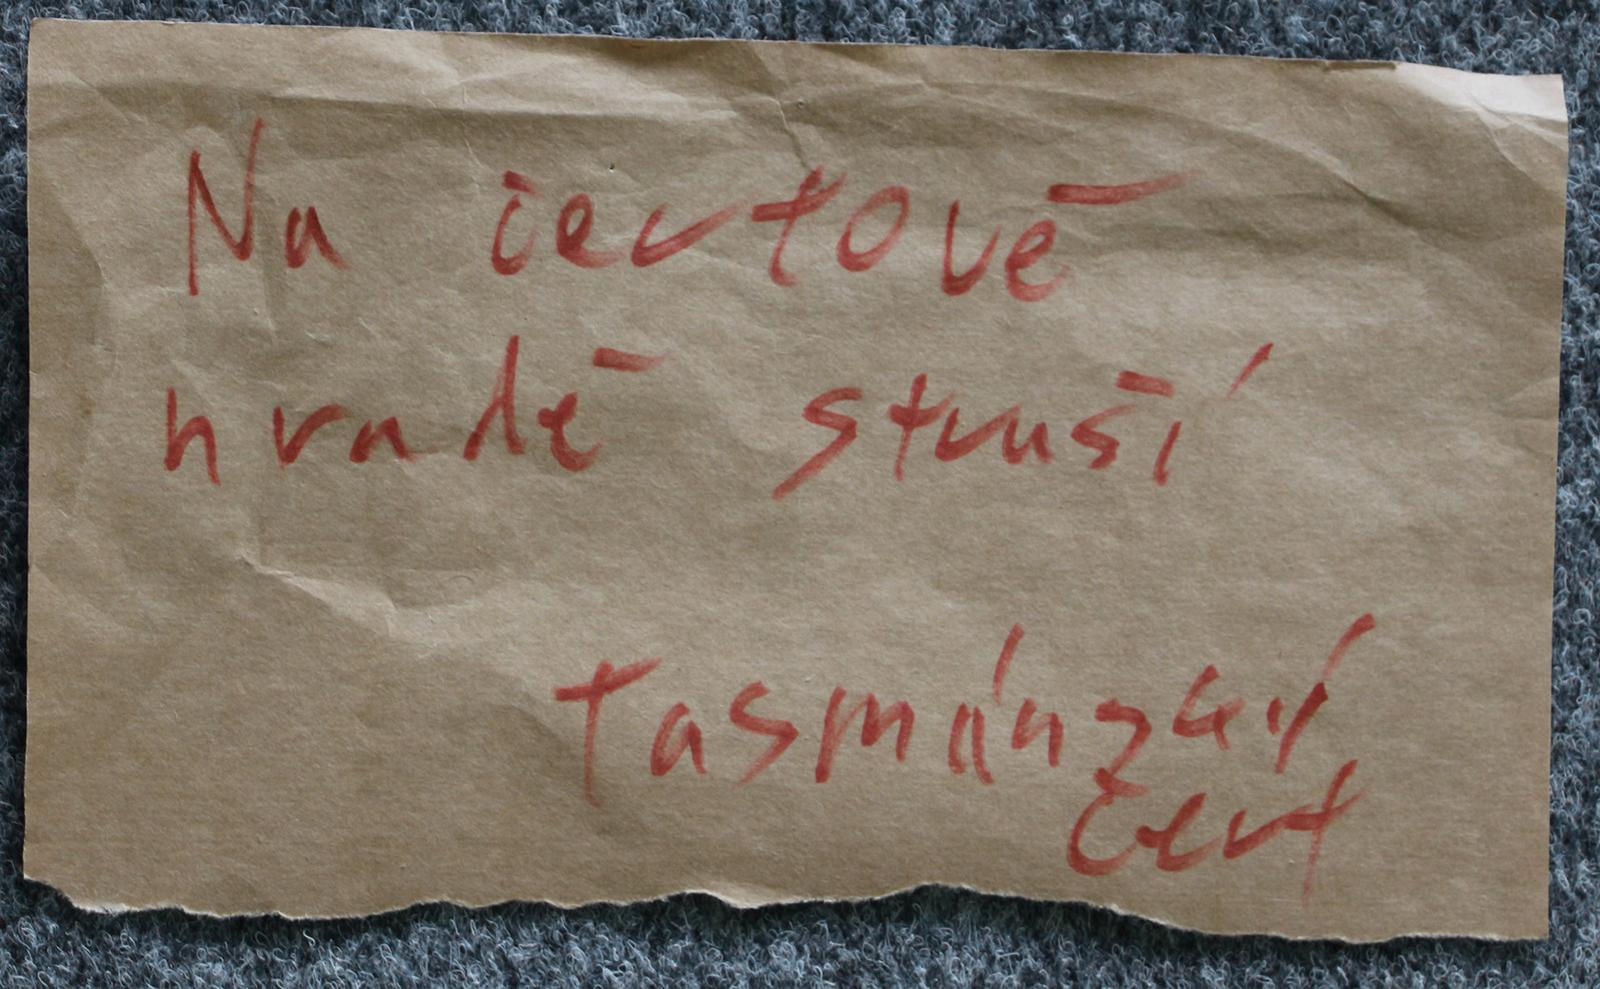 Na čertově
hradě straší
tasmánzký
čert